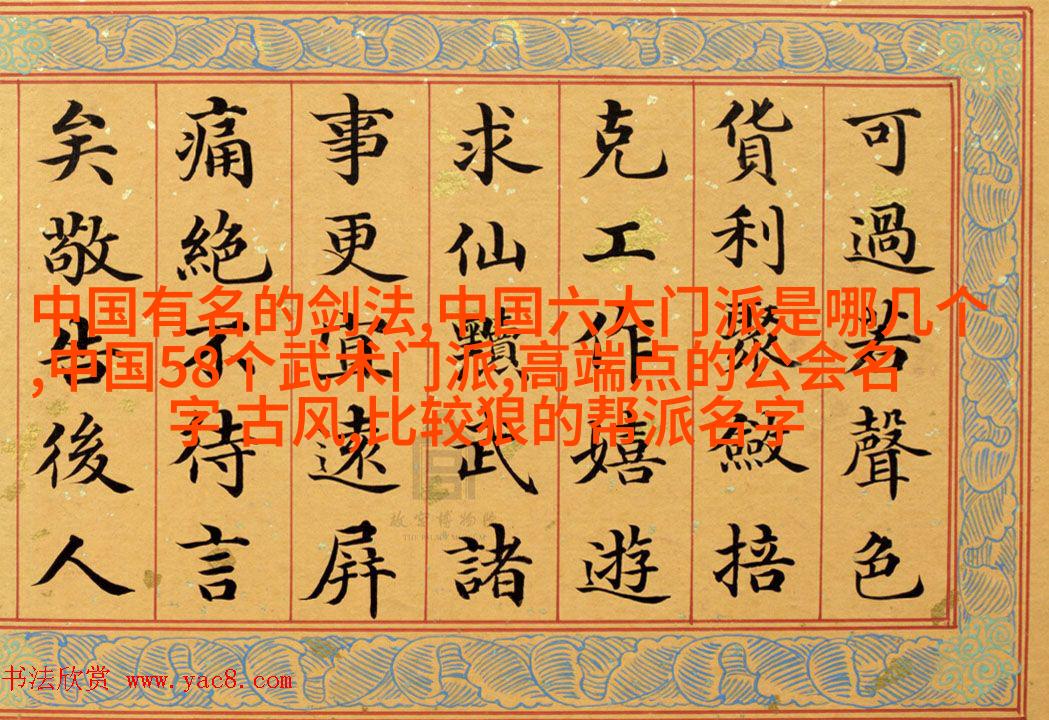 可過若聲色
貨利聚斂掊
克工作嬉遊
求仙黷武諸
事更遠屏
痛絕不待言
矣敬告後人
中国有名的剑法,中国六大门派是哪几个
,中国58个武术门派,高端点的公会名
字 古风,比较狼的帮派名字
故宫博物院
THE PALACE MUSEUM
书法欣赏 www.yac8.com